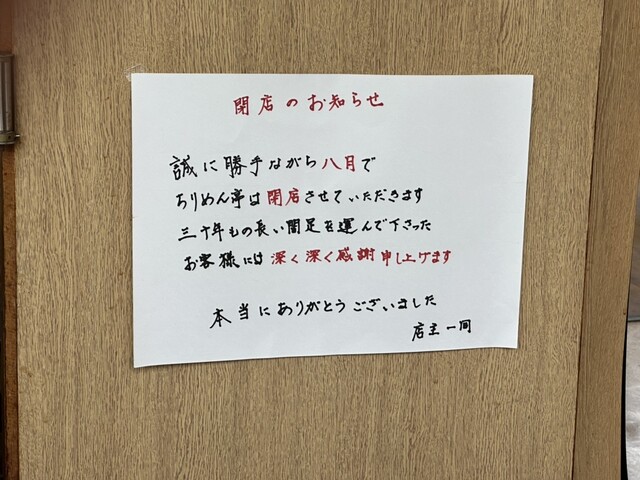 閉店のお知らせ
誠に勝手ながら八月で
ちりめん亭は閉店させていただきます
三十年もの長い間足を運んで下さった
お客様には深く深く感謝申し上げます
本当にありがとうございました
店主一同